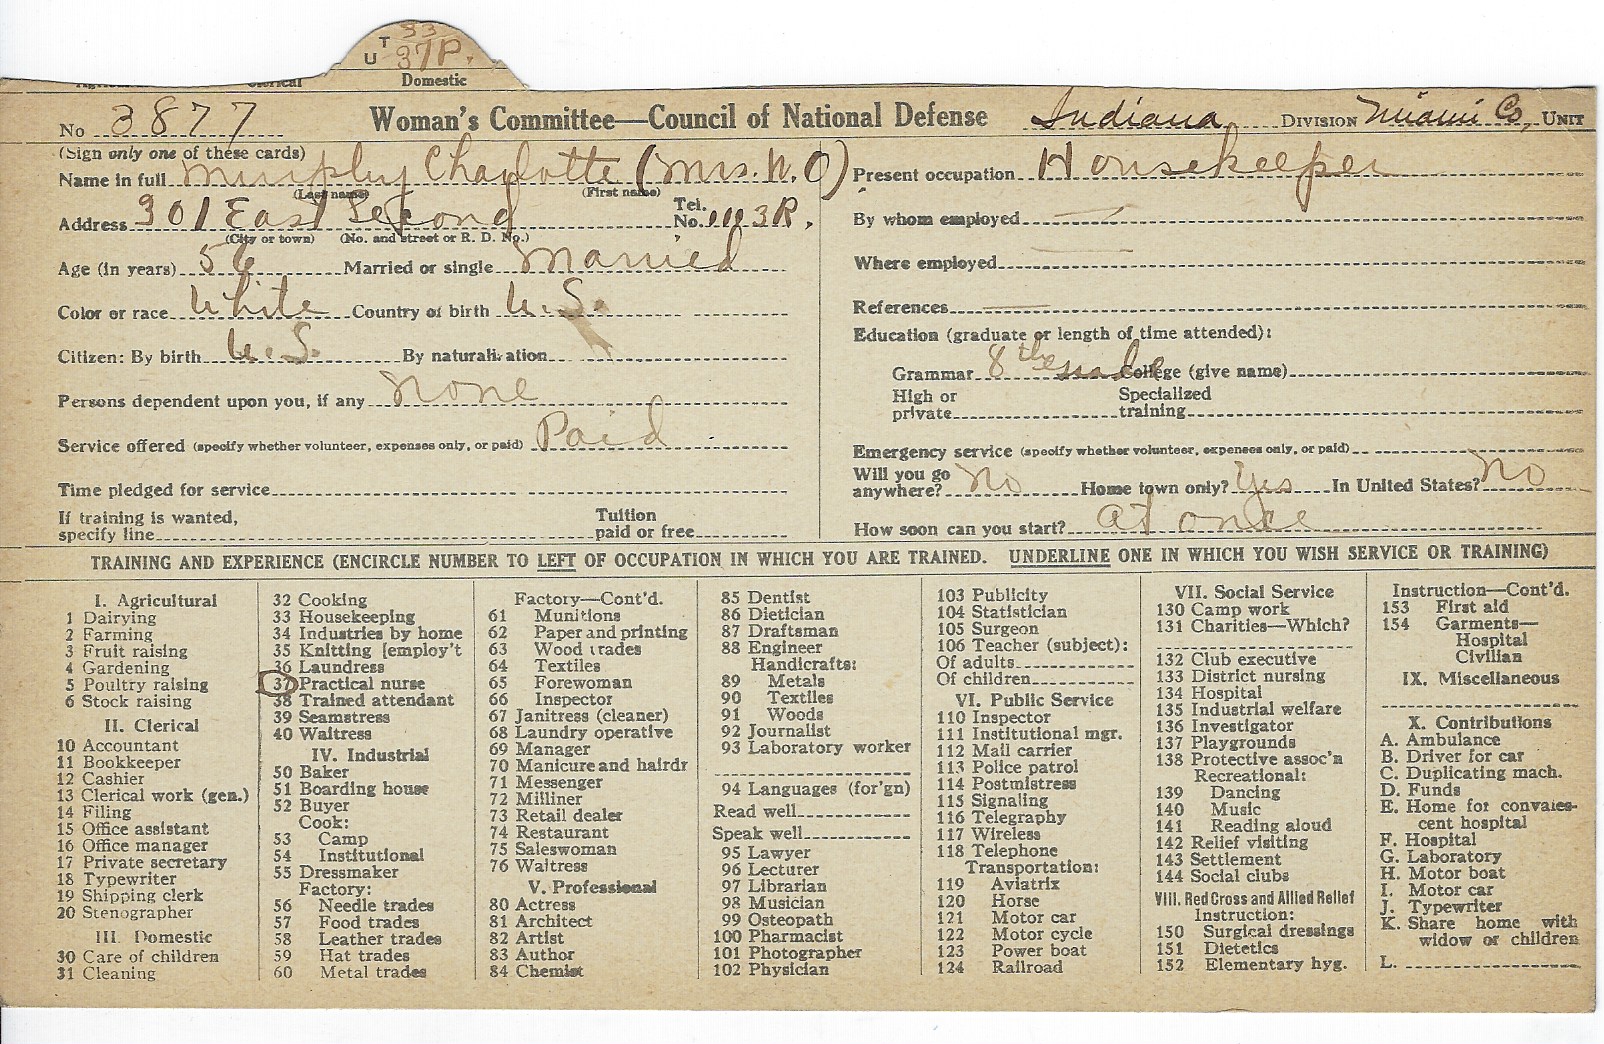 33
U T 37P.
Domestic
No 3877 Woman's Committee—Council of National Defense Indiana DIVISION Miami Co, UNIT
(Sign only one of these cards)
Name in full Murphy Charlotte (Mrs. W. O)
(Last name) (First name)
Address 301 East Second Tel. No. 1113R.
(City or town) (No. and street or R. D. No.)
Age (in years) 56 Married or single Married
Color or race White Country of birth U.S.
Citizen: By birth U.S. By naturalization
Persons dependent upon you, if any None
Service offered (specify whether volunteer, expenses only, or paid) Paid
Time pledged for service
If training is wanted, specify line Tuition paid or free
Present occupation Housekeeper
By whom employed
Where employed
References
Education (graduate or length of time attended):
Grammar 8th College (give name)
High or private Specialized training
Emergency service (specify whether volunteer, expenses only, or paid)
Will you go anywhere? No Home town only? Yes In United States? No
How soon can you start? at once
TRAINING AND EXPERIENCE (ENCIRCLE NUMBER TO LEFT OF OCCUPATION IN WHICH YOU ARE TRAINED. UNDERLINE ONE IN WHICH YOU WISH SERVICE OR TRAINING)
I. Agricultural
1 Dairying
2 Farming
3 Fruit raising
4 Gardening
5 Poultry raising
6 Stock raising
II. Clerical
10 Accountant
11 Bookkeeper
12 Cashier
13 Clerical work (gen.)
14 Filing
15 Office assistant
16 Office manager
17 Private secretary
18 Typewriter
19 Shipping clerk
20 Stenographer
III. Domestic
30 Care of children
31 Cleaning
32 Cooking
33 Housekeeping
34 Industries by home
35 Knitting [employ't
36 Laundress
37 Practical nurse
38 Trained attendant
39 Seamstress
40 Waitress
IV. Industrial
50 Baker
51 Boarding house
52 Buyer
Cook:
53 Camp
54 Institutional
55 Dressmaker
Factory:
56 Needle trades
57 Food trades
58 Leather trades
59 Hat trades
60 Metal trades
Factory—Cont'd.
61 Munitions
62 Paper and printing
63 Wood trades
64 Textiles
65 Forewoman
66 Inspector
67 Janitress (cleaner)
68 Laundry operative
69 Manager
70 Manicure and hairdr
71 Messenger
72 Milliner
73 Retail dealer
74 Restaurant
75 Saleswoman
76 Waitress
V. Professional
80 Actress
81 Architect
82 Artist
83 Author
84 Chemist
85 Dentist
86 Dietician
87 Draftsman
88 Engineer
Handicrafts:
89 Metals
90 Textiles
91 Woods
92 Journalist
93 Laboratory worker
94 Languages (for'gn)
Read well
Speak well
95 Lawyer
96 Lecturer
97 Librarian
98 Musician
99 Osteopath
100 Pharmacist
101 Photographer
102 Physician
103 Publicity
104 Statistician
105 Surgeon
106 Teacher (subject):
Of adults
Of children
VI. Public Service
110 Inspector
111 Institutional mgr.
112 Mail carrier
113 Police patrol
114 Postmistress
115 Signaling
116 Telegraphy
117 Wireless
118 Telephone
Transportation:
119 Aviatrix
120 Horse
121 Motor car
122 Motor cycle
123 Power boat
124 Railroad
VII. Social Service
130 Camp work
131 Charities—Which?
132 Club executive
133 District nursing
134 Hospital
135 Industrial welfare
136 Investigator
137 Playgrounds
138 Protective assoc'n
Recreational:
139 Dancing
140 Music
141 Reading aloud
142 Relief visiting
143 Settlement
144 Social clubs
VIII. Red Cross and Allied Relief
Instruction:
150 Surgical dressings
151 Dietetics
152 Elementary hyg.
Instruction—Cont'd.
153 First aid
154 Garments—
Hospital
Civilian
IX. Miscellaneous
X. Contributions
A. Ambulance
B. Driver for car
C. Duplicating mach.
D. Funds
E. Home for convales-
cent hospital
F. Hospital
G. Laboratory
H. Motor boat
I. Motor car
J. Typewriter
K. Share home with
widow or children
L.